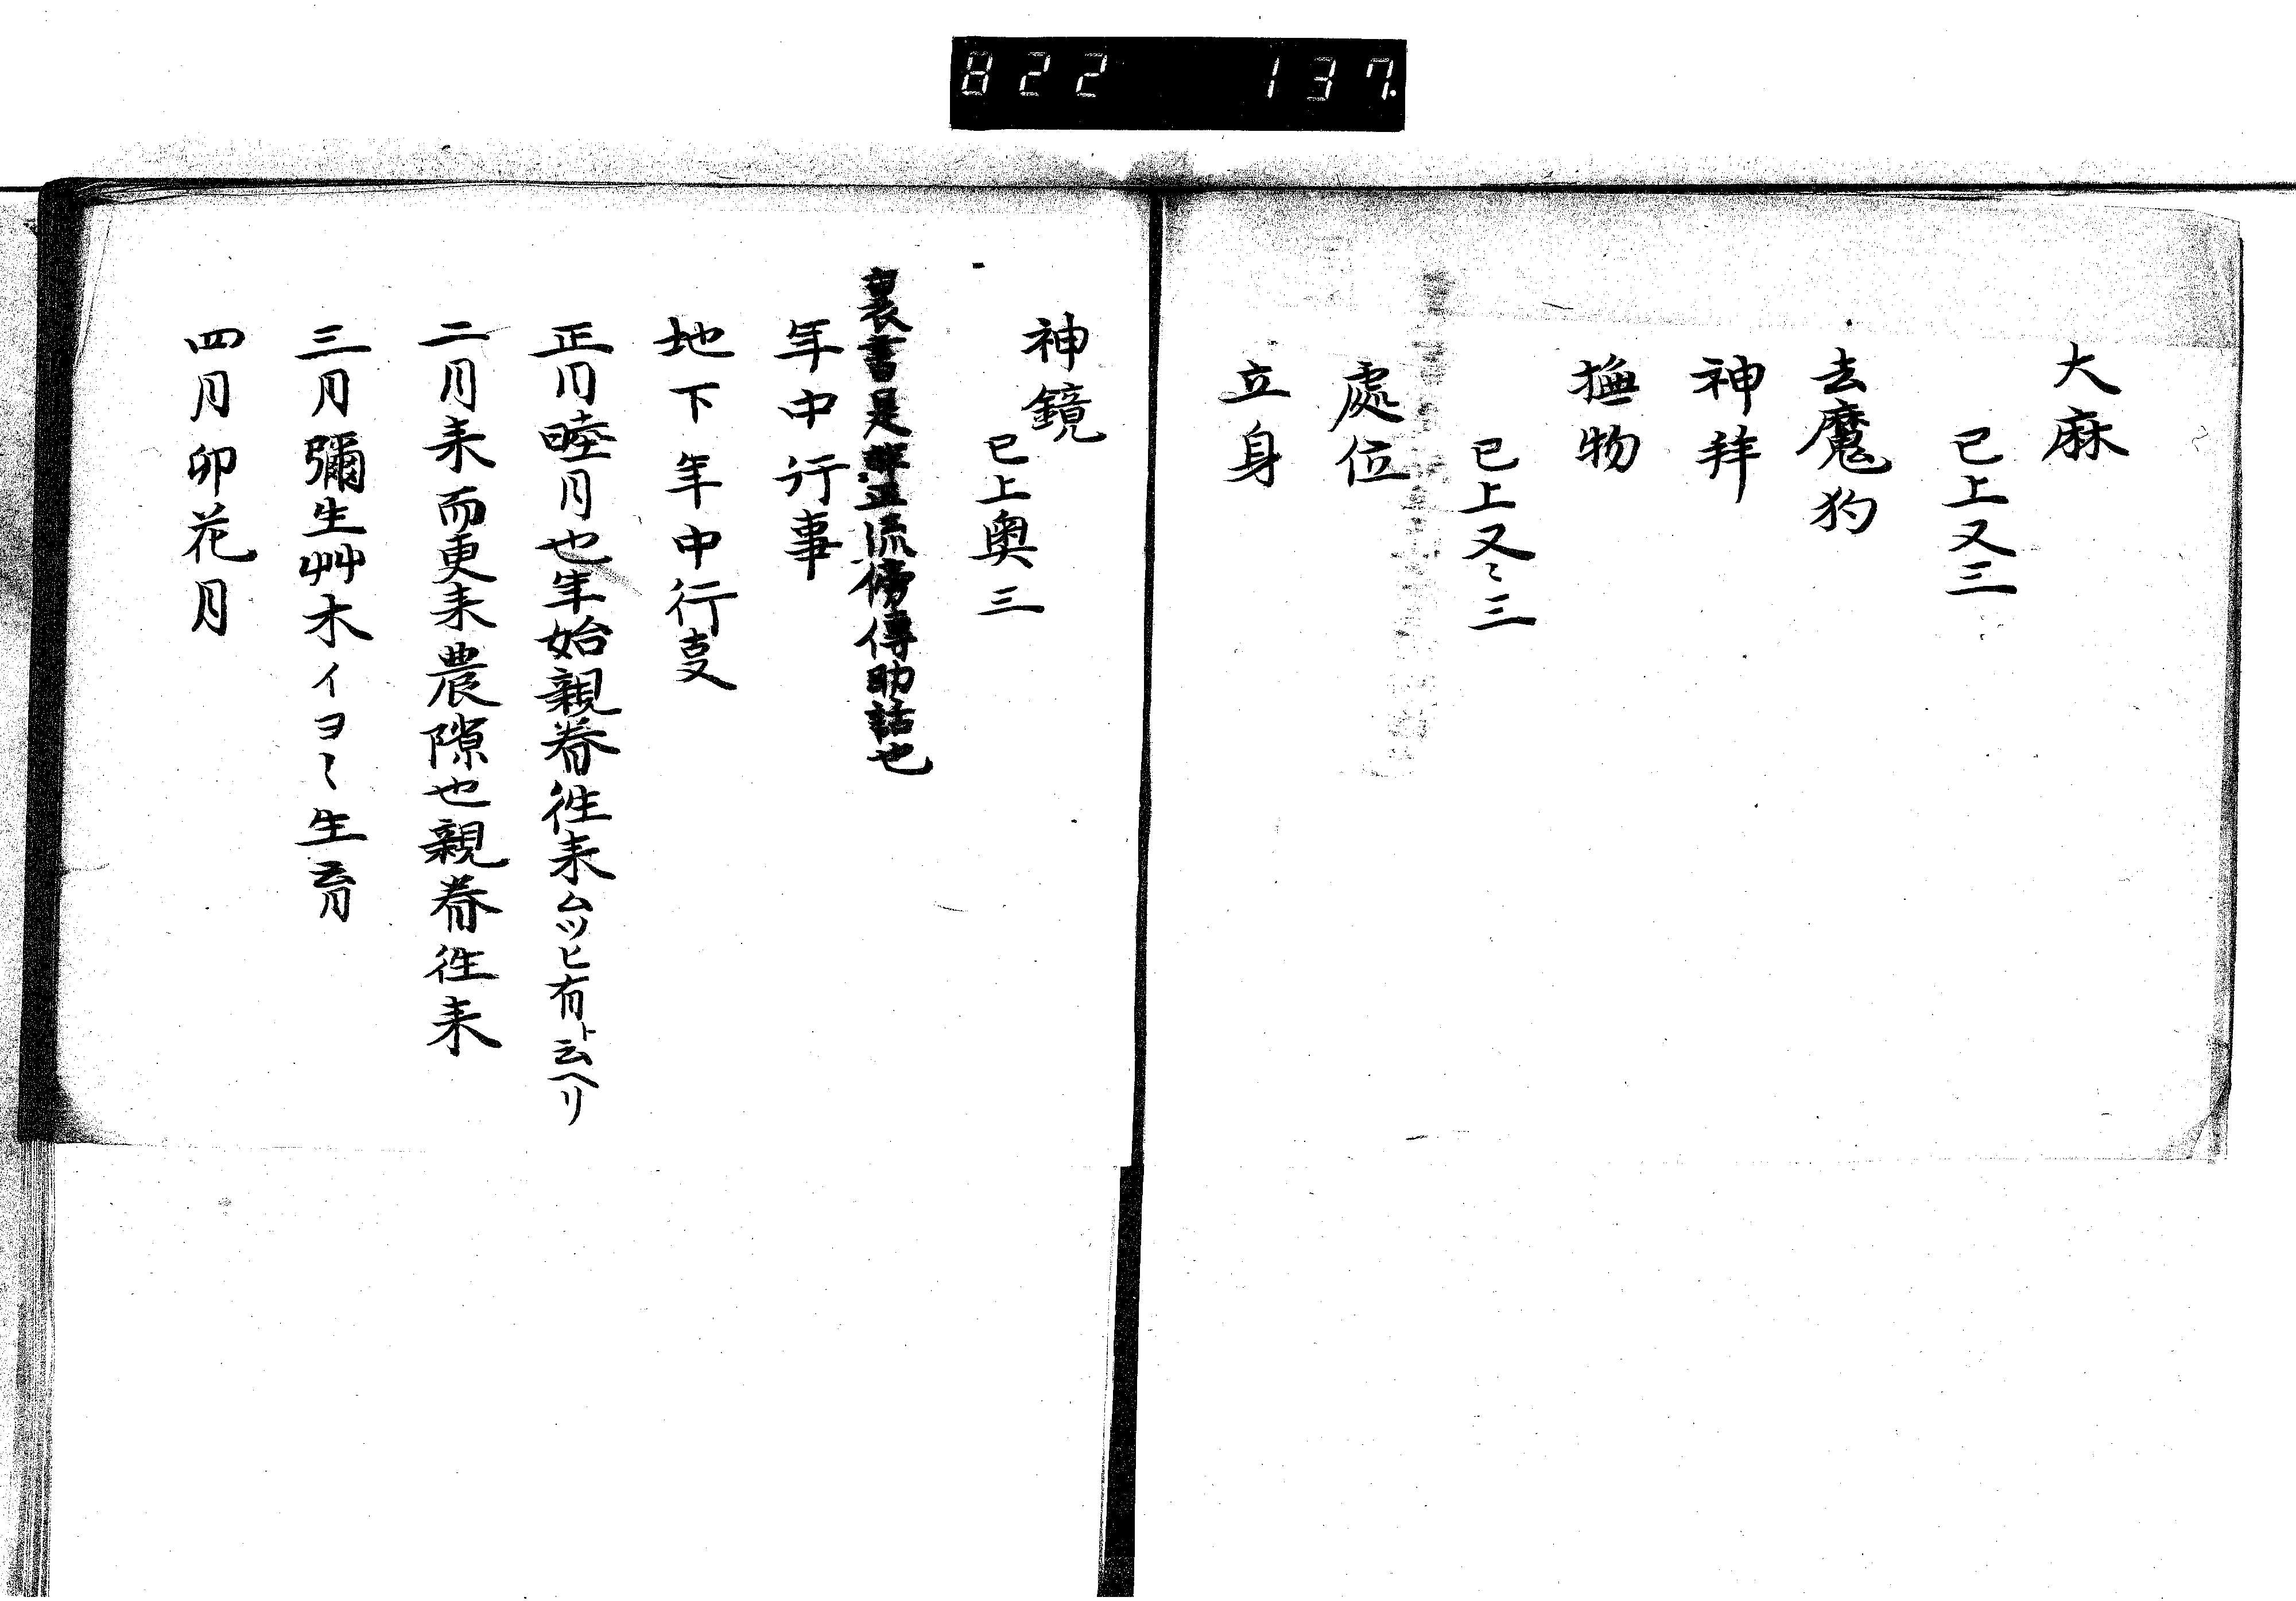 822 137
大麻
已上又三
去魔狗
神拜
撫物
已上又〻三
處位
立身
神鏡
已上奥三
裏書是非正流傍傳助話也
年中行事
地下年中行叓
正月睦月也年始親眷徃来ムツヒ有ト云ヘリ
二月来而更来農隙也親眷徃来
三月彌生艸木イヨ〻生育
四月卯花月